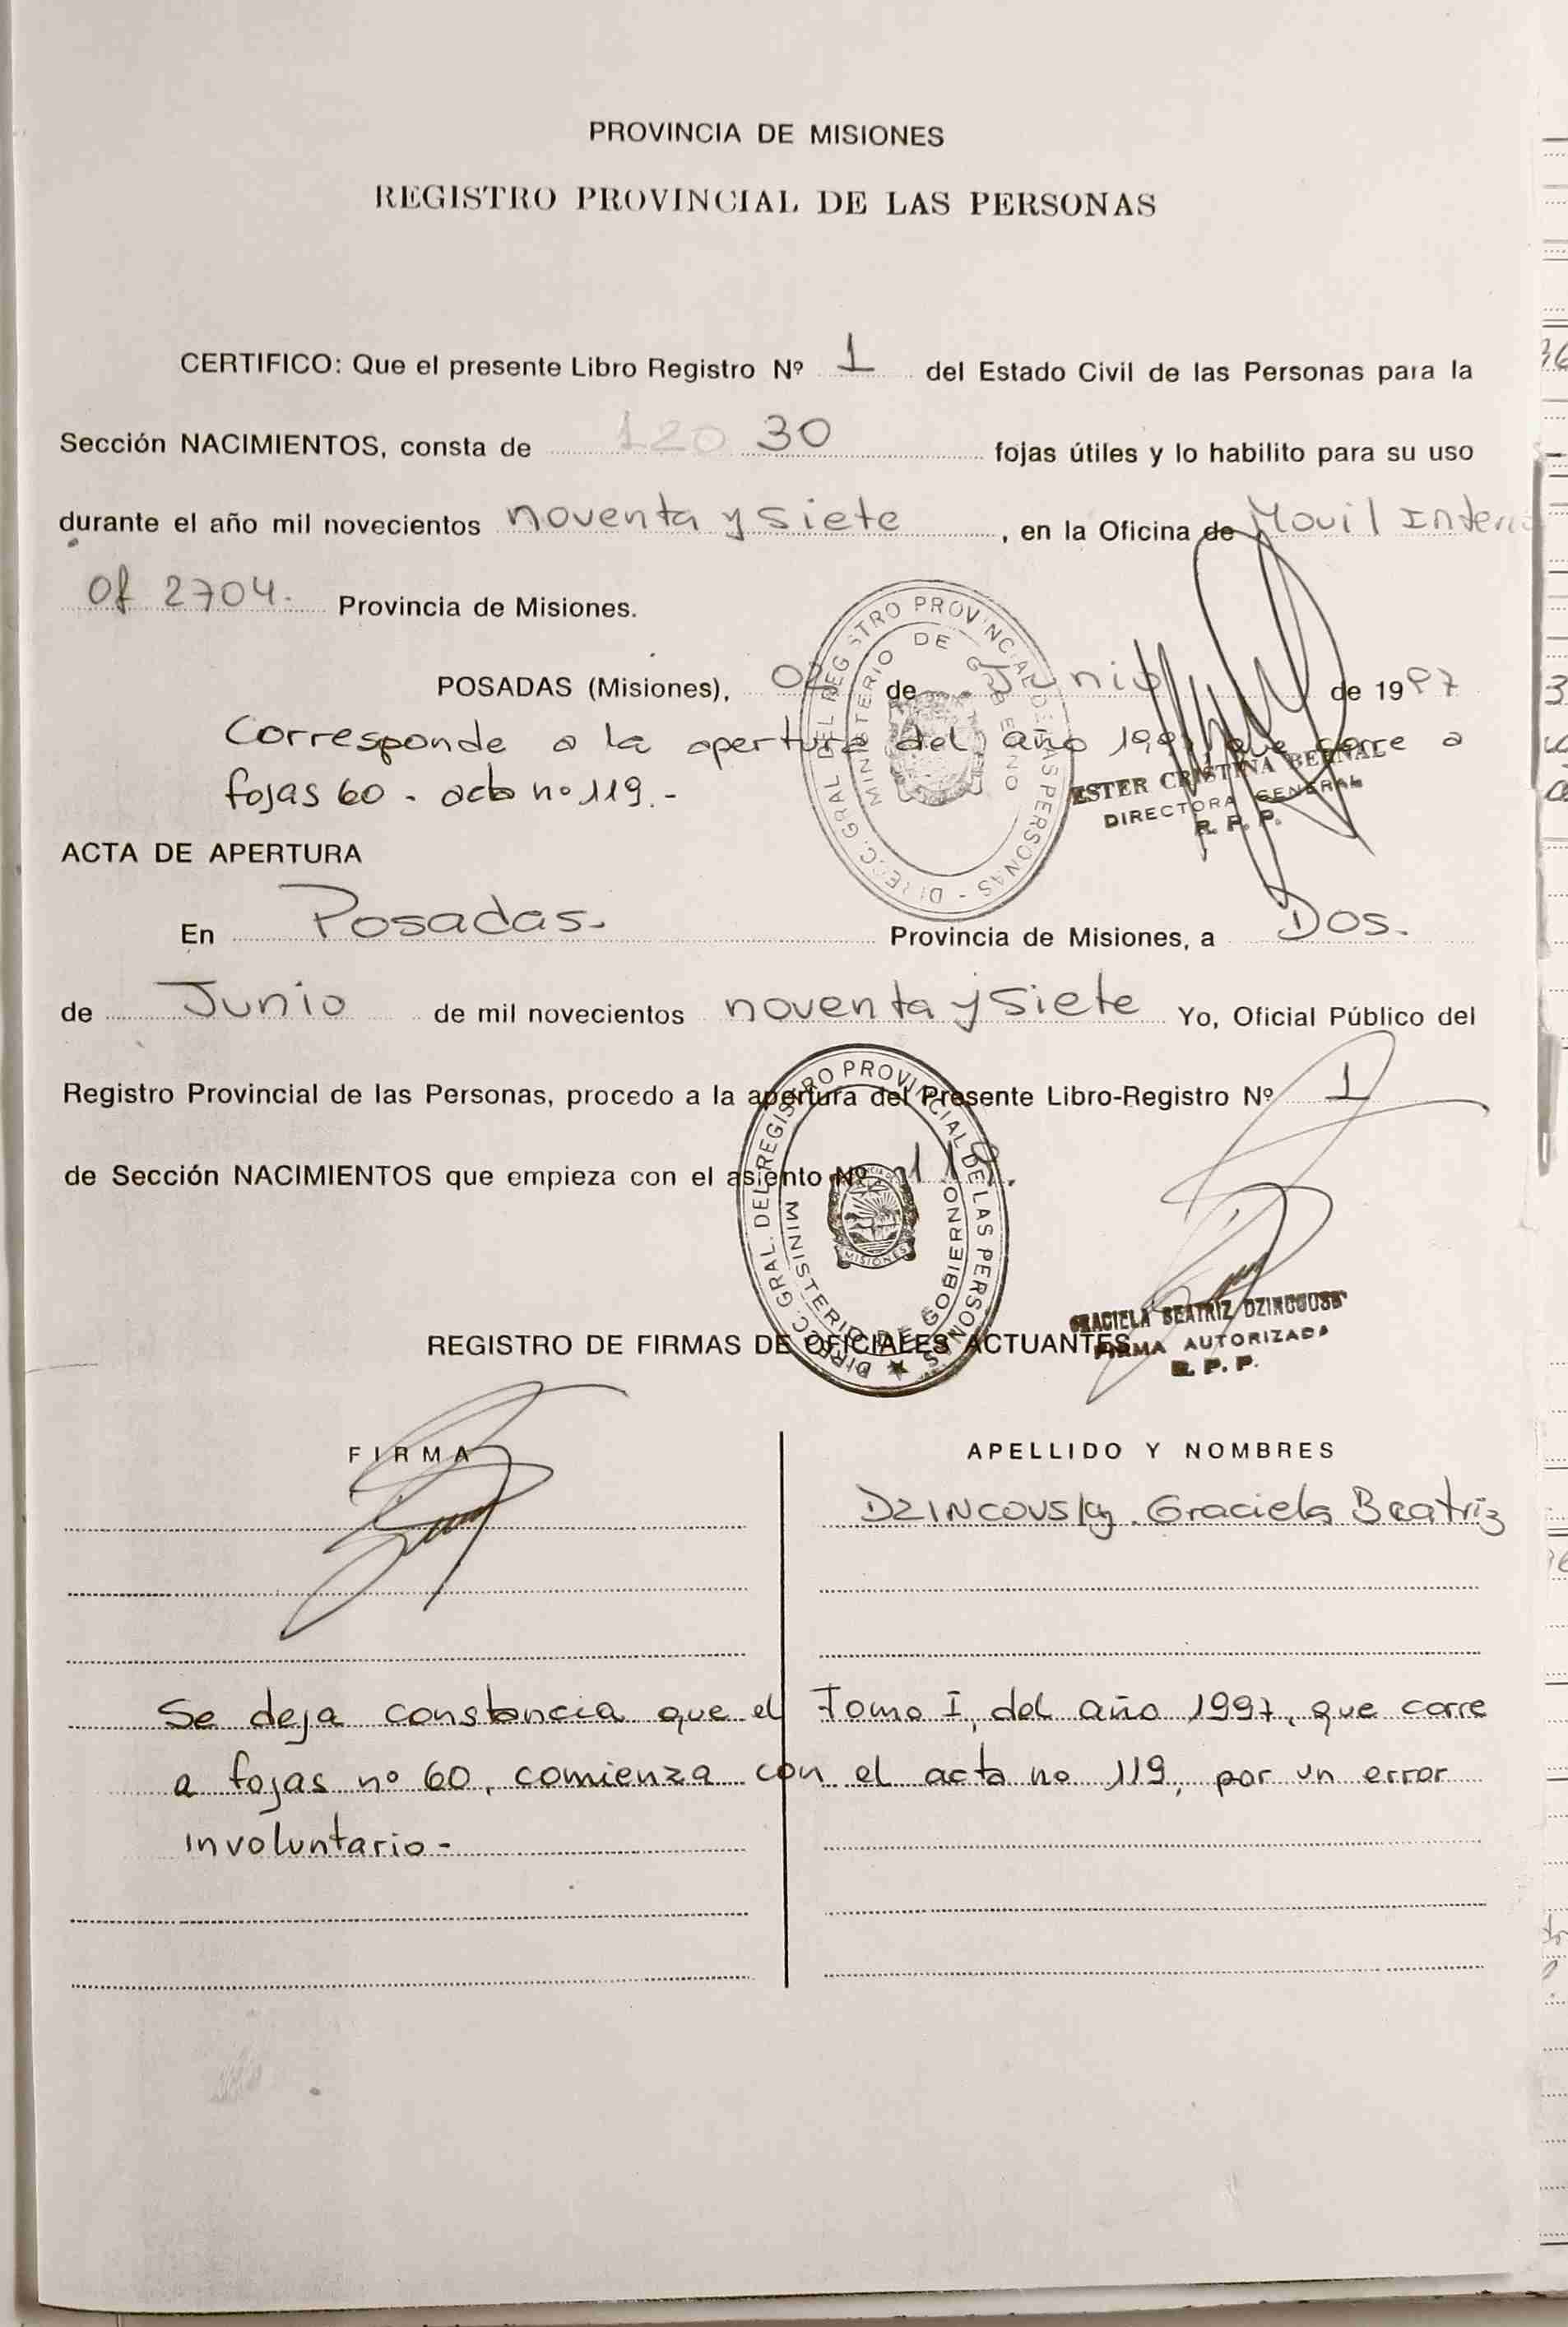 PROVINCIA DE MISIONES
REGISTRO PROVINCIAL DE LAS PERSONAS
CERTIFICO: Que el presente Libro Registro Nº 1 del Estado Civil de las Personas para la
Sección NACIMIENTOS, consta de 120 30 fojas útiles y lo habilito para su uso
durante el año mil novecientos noventa y siete, en la Oficina de Movil
Of 2704. Provincia de Misiones.
POSADAS (Misiones), 02 de Junio de 1997
Corresponde a la apertura del año 1997, que corre a
fojas 60 - acta nº 119.-
DIRECC. GRAL DEL REGISTRO PROVINCIAL DE LAS PERSONAS -
MINISTERIO DE GOBIERNO
ESTER CRISTINA BERNAL
DIRECTORA GENERAL
R. P. P.
ACTA DE APERTURA
En Posadas. Provincia de Misiones, a Dos.
de Junio de mil novecientos noventa y siete Yo, Oficial Público del
Registro Provincial de las Personas, procedo a la apertura del Presente Libro-Registro Nº 1
de Sección NACIMIENTOS que empieza con el asiento Nº 119.
DIRECC. GRAL. DEL REGISTRO PROVINCIAL DE LAS PERSONAS
MINISTERIO DE GOBIERNO
MISIONES
GRACIELA BEATRIZ
FIRMA AUTORIZADA
R. P. P.
REGISTRO DE FIRMAS DE OFICIALES ACTUANTES
FIRMA
APELLIDO Y NOMBRES
DZINCOVSky. Graciela Beatriz
Se deja constancia que el Tomo I, del año 1997, que corre
a fojas nº 60, comienza con el acta no 119, por un error
involuntario-